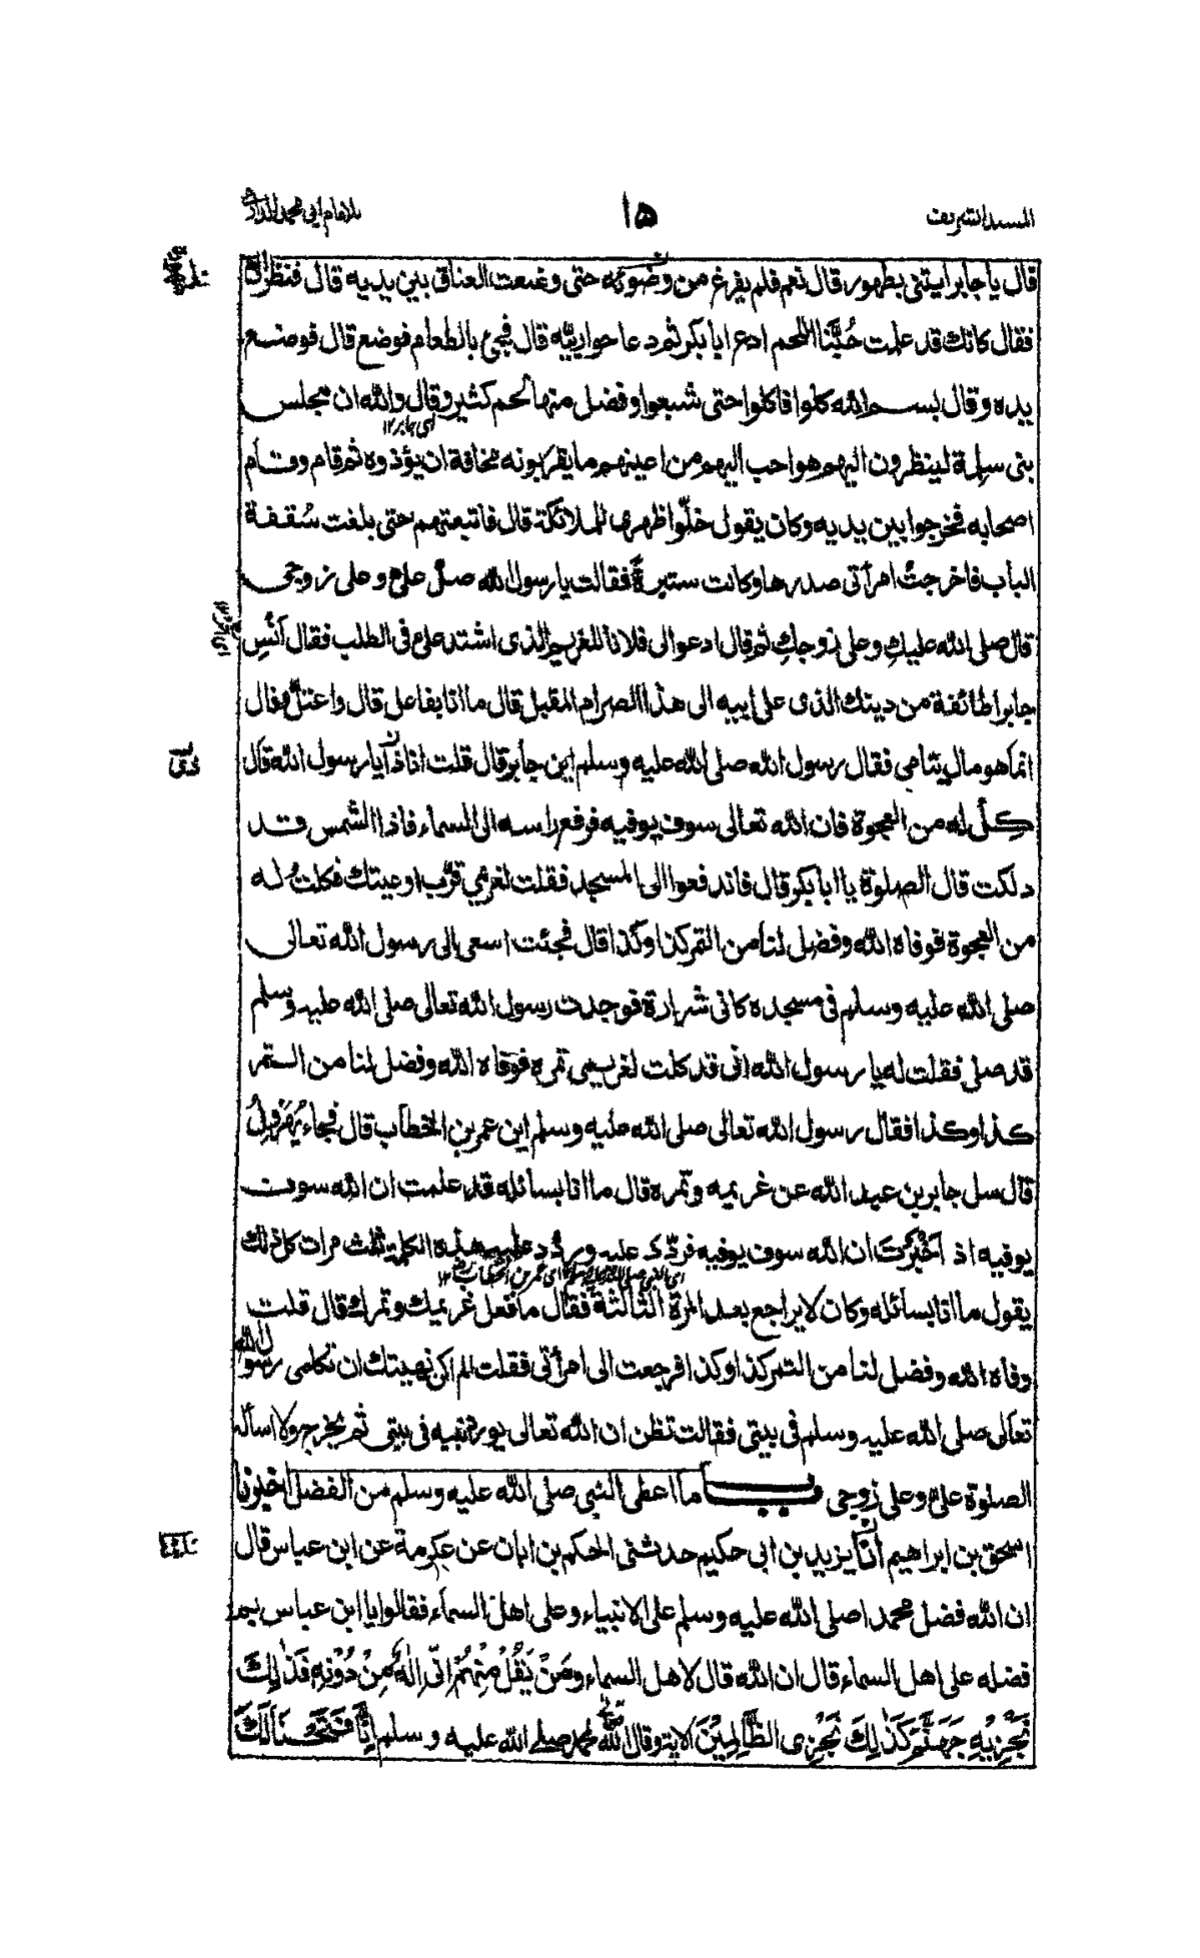 المسند الشريف
١٥
للامام ابي محمد الدارمي
قال يا جابر ايتني بطهور قال نعم فلم يفرغ من وضوئه حتى وضعت العناق بين يديه قال فنظر الى
فقال كانك قد علمت حُبَّنا اللحم ادع ابا بكر ثم دعا حوارييه قال فجيئ بالطعام فوضع قال فوضع
يده وقال بسم الله كلوا فاكلوا حتى شبعوا وفضل منها لحم كثير وقال والله ان مجلس
اى جابر١٢
بنى سلمة لينظرون اليهم هو احب اليهم من اعينهم ما يقربونه مخافة ان يؤذوه ثم قام وقام
اصحابه فخرجوا بين يديه وكان يقول خلّوا ظهرى للملائكة قال فاتبعتهم حتى بلغت سُقفة
الباب فاخرجتْ امرأتى صدرها وكانت ستيرةً فقالت يا رسول الله صلّ علىّ وعلى زوجى
قال صلى الله عليكِ وعلى زوجكِ ثم قال ادعوا لى فلانا للغريم الذى اشتد علىّ فى الطلب فقال اَنْسِ
جابرا طائفة من دينك الذى على ابيه الى هذا الصرام المقبل قال ما انا بفاعل قال واعتلّ وقال
انما هو مال يتامى فقال رسول الله صلى الله عليه وسلم اين جابر قال قلت انا ذا يا رسول الله قال
كِلْ له من العجوة فان الله تعالى سوف يوفيه فرفع راسه الى السماء فاذا الشمس قد
دلكت قال الصلوة يا ابا بكر قال فاندفعوا الى المسجد فقلت لغريمى قرّب اوعيتك فكلتُ له
من العجوة فوفاه الله وفضل لنا من التمر كذا وكذا قال فجئت اسعى الى رسول الله تعالى
صلى الله عليه وسلم فى مسجده كانى شرارة فوجدت رسول الله تعالى صلى الله عليه وسلم
قد صلى فقلت له يا رسول الله انى قد كلت لغريمى تمره فوفاه الله وفضل لنا من التمر
كذا وكذا فقال رسول الله تعالى صلى الله عليه وسلم اين عمر بن الخطاب قال فجاء يُهَرْوِلُ
قال سل جابر بن عبد الله عن غريمه وتمره قال ما انا بسائله قد علمت ان الله سوف
يوفيه اذ اَخْبَرْتَ ان الله سوف يوفيه فردّد عليه وردّد عليه هذه الكلمة ثلث مرات كل ذلك
اى النبى صلى الله عليه وسلم اى عمر بن الخطاب١٢
يقول ما انا بسائله وكان لا يراجع بعد المرة الثالثة فقال ما فعل غريمك وتمرك قال قلت
وفاه الله وفضل لنا من التمر كذا وكذا فرجعت الى امرأتى فقلت الم اكن نهيتك ان تكلمى رسول الله
تعالى صلى الله عليه وسلم فى بيتى فقالت تظن ان الله تعالى يورد نبيه فى بيتى ثم يخرج ولا اسأله
الصلوة علىّ وعلى زوجى باب ما اعطى النبى صلى الله عليه وسلم من الفضل اخبرنا
اسحق بن ابراهيم انا يزيد بن ابى حكيم حدثنى الحكم بن ابان عن عكرمة عن ابن عباس قال
ان الله فضل محمدا صلى الله عليه وسلم على الانبياء وعلى اهل السماء فقالوا يا ابن عباس بم
فضله على اهل السماء قال ان الله قال لاهل السماء ومَنْ يَقُلْ مِنْهُمْ اِنِّى اِلٰهٌ مِنْ دُوْنِهٖ فَذٰلِكَ
نَجْزِيْهِ جَهَنَّمَ كَذٰلِكَ نَجْزِى الظّٰلِمِيْنَ الاية وقال الله لمحمد صلى الله عليه وسلم اِنَّا فَتَحْنَا لَكَ